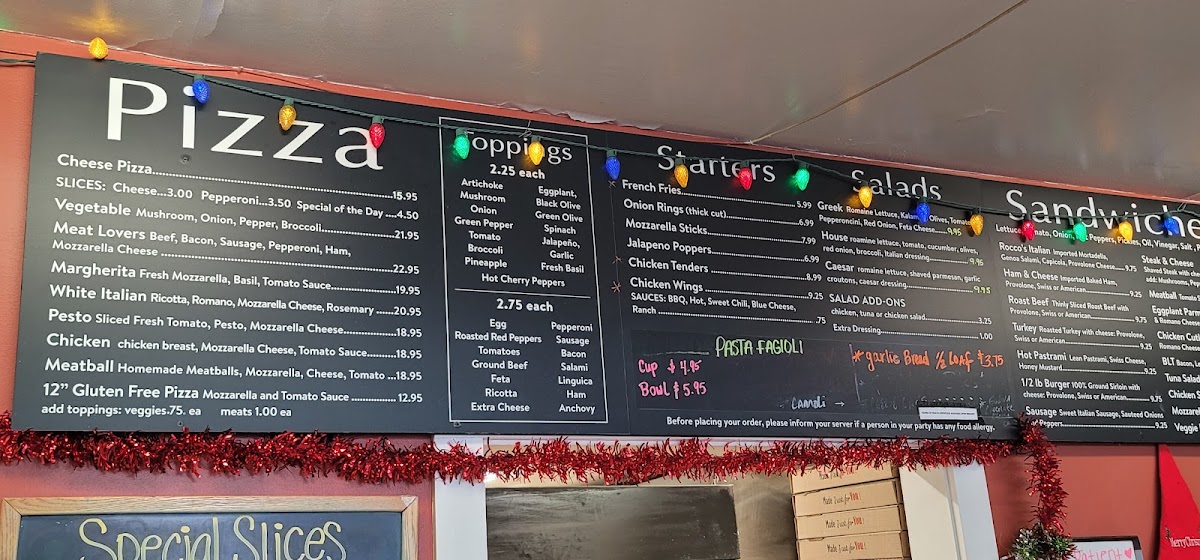 Pizza
Cheese Pizza...15.95
SLICES: Cheese...3.00 Pepperoni...3.50 Special of the Day ....4.50
Vegetable Mushroom, Onion, Pepper, Broccoli...21.95
Meat Lovers Beef, Bacon, Sausage, Pepperoni, Ham,
Mozzarella Cheese ...22.95
Margherita Fresh Mozzarella, Basil, Tomato Sauce...19.95
White Italian Ricotta, Romano, Mozzarella Cheese, Rosemary ...20.95
Pesto Sliced Fresh Tomato, Pesto, Mozzarella Cheese...18.95
Chicken chicken breast, Mozzarella Cheese, Tomato Sauce...18.95
Meatball Homemade Meatballs, Mozzarella, Cheese, Tomato ...18.95
12" Gluten Free Pizza Mozzarella and Tomato Sauce ...12.95
add toppings: veggies.75. ea meats 1.00 ea
Toppings
2.25 each
Artichoke
Mushroom
Onion
Green Pepper
Tomato
Broccoli
Pineapple
Eggplant,
Black Olive
Green Olive
Spinach
Jalapeño,
Garlic
Fresh Basil
Hot Cherry Peppers
2.75 each
Egg
Roasted Red Peppers
Tomatoes
Ground Beef
Feta
Ricotta
Extra Cheese
Pepperoni
Sausage
Bacon
Salami
Linguica
Ham
Anchovy
Starters
French Fries...5.99
Onion Rings (thick cut)...6.99
Mozzarella Sticks...7.99
Jalapeno Poppers...6.99
Chicken Tenders ...8.99
Chicken Wings ...9.25
SAUCES: BBQ, Hot, Sweet Chili, Blue Cheese,
Ranch ....75
PASTA FAGIOLI
Cup $4.95
Bowl $5.95
Salads
Greek Romaine Lettuce, Kalamata Olives, Tomato,
Pepperoncini, Red Onion, Feta Cheese...9.95
House romaine lettuce, tomato, cucumber, olives,
red onion, broccoli, Italian dressing...9.95
Caesar romaine lettuce, shaved parmesan, garlic
croutons, caesar dressing...9.95
SALAD ADD-ONS
chicken, tuna or chicken salad...3.25
Extra Dressing...1.00
*garlic Bread 1/2 Loaf $3.75
Cannoli →
Before placing your order, please inform your server if a person in your party has any food allergy.
Sandwiche
Lettuce, Tomato, Onion, Hot Peppers, Pickles, Oil, Vinegar, Salt
Rocco's Italian Imported Mortadella,
Genoa Salami, Capicola, Provolone Cheese...9.75
Ham & Cheese Imported Baked Ham,
Provolone, Swiss or American...9.25
Roast Beef Thinly Sliced Roast Beef with
Provolone, Swiss or American...9.75
Turkey Roasted Turkey with cheese: Provolone,
Swiss or American...9.25
Hot Pastrami Lean Pastrami, Swiss Cheese,
Honey Mustard...9.25
1/2 lb Burger 100% Ground Sirloin with
cheese: Provolone, Swiss or American...9.75
Sausage Sweet Italian Sausage, Sauteed Onions
Peppers...9.25
Steak & Cheese
Shaved Steak with
add: Mushrooms,
Meatball
Eggplant Parm
& Romano Cheese
Chicken
Romano Cheese
BLT Bacon,
Tuna Salad
Chicken
Mozzare
Veggie
Special Slices
Made Just for YOU!
Made Just for YOU!
Made Just for YOU!
Made Just for YOU!